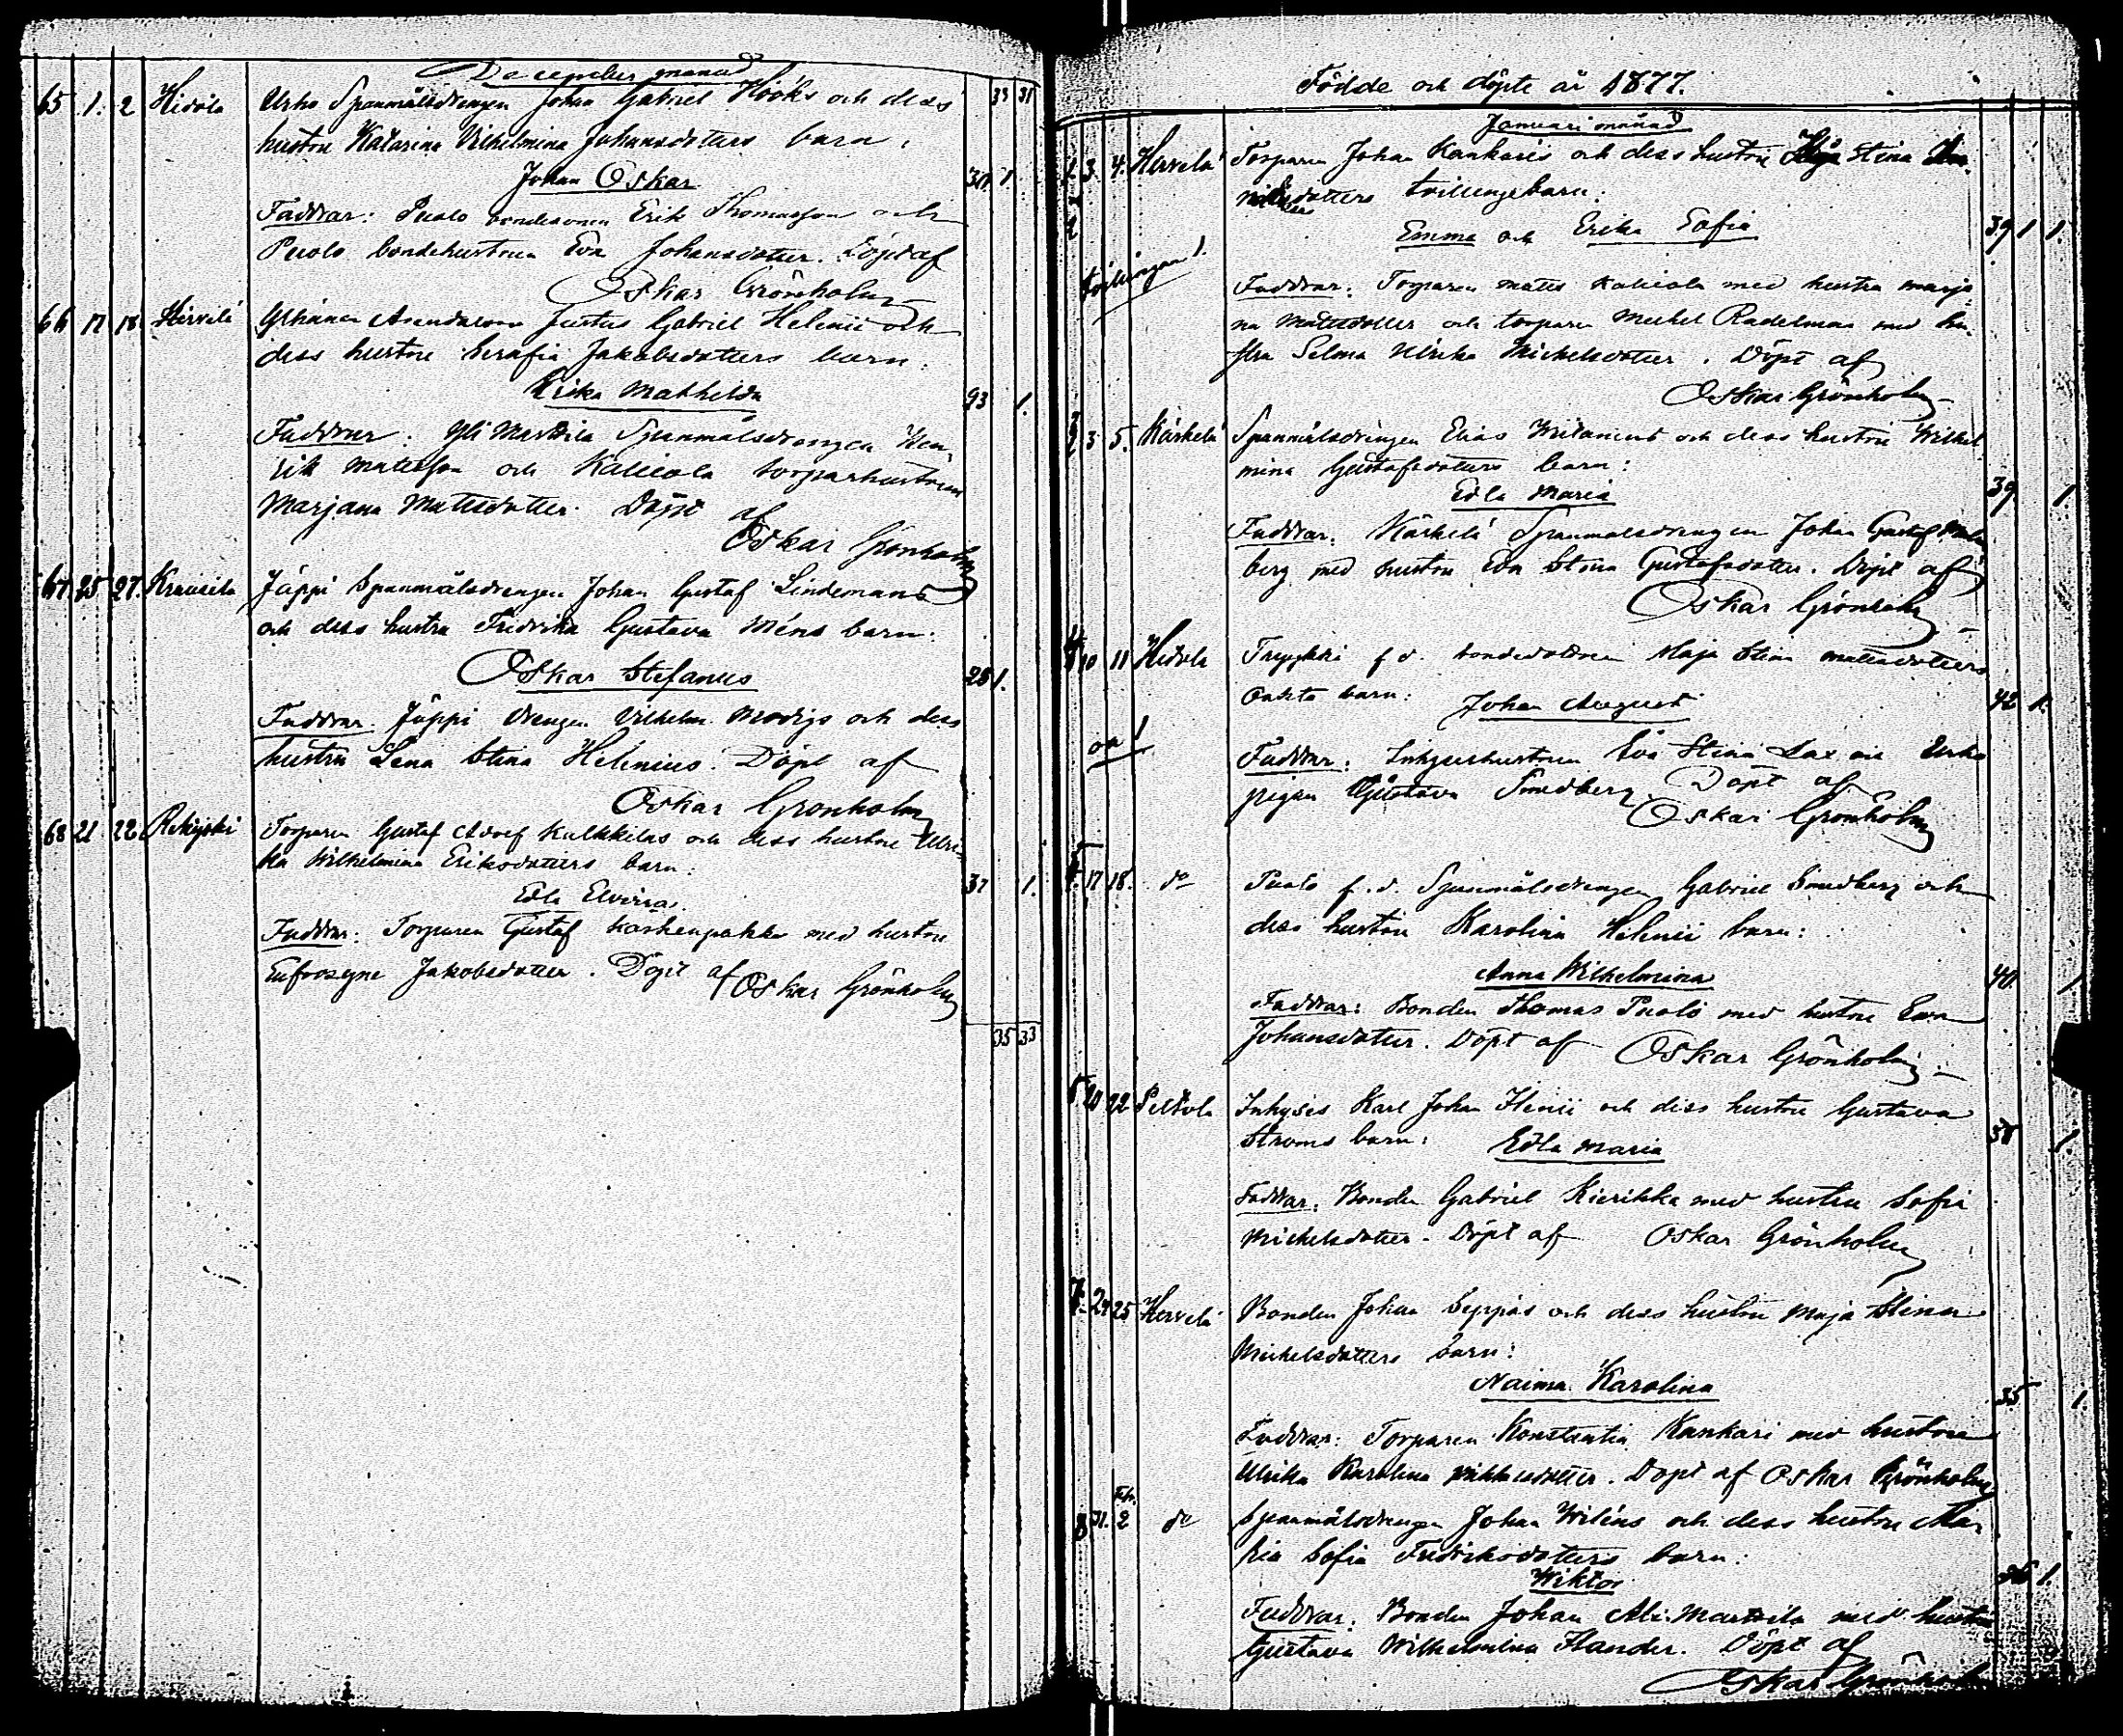 December månad
33 31
65 1. 2 Hidola Urho Spanmålsdrengen Johan Gabriel Hööks och dess
hustru Katarina Vilhelmina Johansdotters barn:
Johan Oskar
Faddrar: Puolo bondesonen Erik Thomasson och
Puolo bondehustrun Eva Johansdotter. Döpt af
Oskar Grönholm
66 17 18 Hirvelä Arendatorn Justus Gabriel Helenii och
dess hustru Serafia Jakobsdotters barn:
Mathilda
Faddrar: Yli Marttila Spanmålsdrengen Hen-
rik Mattsson och Kalliola torparhustrun
Marjana Mattsdotter. Döpt af
Oskar Grönholm
67 25 27. Krauvila Jäppi Spanmålsdrengen Johan Gustaf Lindemans
och dess hustru Fredrika Gustava barn:
Oskar Stefanus
28 1.
Faddrar. Jäppi drengen Vilhelm Modigs och dess
hustru Lena Stina Helenius. Döpt af
Oskar Grönholm
68 21 22 Rekijoki Torparen Gustaf Adolf Kulkkilas och dess hustru Ulri-
ka Wilhelmina Eriksdotters barn:
Edla Elviira.
37 1.
Faddrar: Torparen Gustaf med hustru
Eufrosyne Jakobsdotter. Döpt af Oskar Grönholm
35 33
Födde och döpte år 1877.
Januari månad
1. 3. 4. Hirvelä Torparen Johan Kankaris och dess hustru Stina
dotters tvillingebarn:
2
Emma och Erika Sofia
39 1 1.
tvillingar 1.
Faddrar: Torparen Matts Kalliola med hustru Marja-
na Mattsdotter och torparen Mickel Radelmaa med hu-
stru Selma Ulrika Mickelsdotter. Döpt af
Oskar Grönholm
3 3 5. Kärkelä Spanmålsdrengen Elias och dess hustru Wilhel-
mina Gustafsdotters barn:
Edla Maria
39 1.
Faddrar: Kärkelä Spanmålsdrengen Johan Gustaf
berg med hustru Eva Stina Gustafsdotter. Döpt af
Oskar Grönholm
4 10 11 Hidola f.d. bondedottren Maja Stina Mattsdotters
oäkta barn:
Johan August
42 1.
oä 1
Faddrar: Inhyseshustrun Eva Stina Lax och Urho
pigan Gustava Smedberg. Döpt af
Oskar Grönholm
5 17 18. do Puolo f.d. Spanmålsdrengen Gabriel Smedberg och
dess hustru Karolina Helenii barn:
Anna Wilhelmina
40. 1
Faddrar: Bonden Thomas Puolo med hustru Eva
Johansdotter. Döpt af Oskar Grönholm
6 20 22 Peltola Inhyses Karl Johan och dess hustru Gustava
Ströms barn:
Edla Maria
38 1.
Faddrar: Bonden Gabriel Kierikka med hustru Sofia
Mickelsdotter. Döpt af Oskar Grönholm
7. 24 25 Hirvelä Bonden Johan Seppäs och dess hustru Maja Stina
Mickelsdotters barn:
Naima Karolina
35 1.
Faddrar: Torparen Konstantin Kankari med hustru
Ulrika Karolina. Döpt af Oskar Grönholm
Feb.
8 31. 2 do Spanmålsdrengen Johan Wiléns och dess hustru Ma-
ria Sofia Fredriksdotters barn:
Wiktor
1.
Faddrar: Bonden Johan Ali-Marttila med hustru
Gustava Wilhelmina Flander. Döpt af
Oskar Grönholm